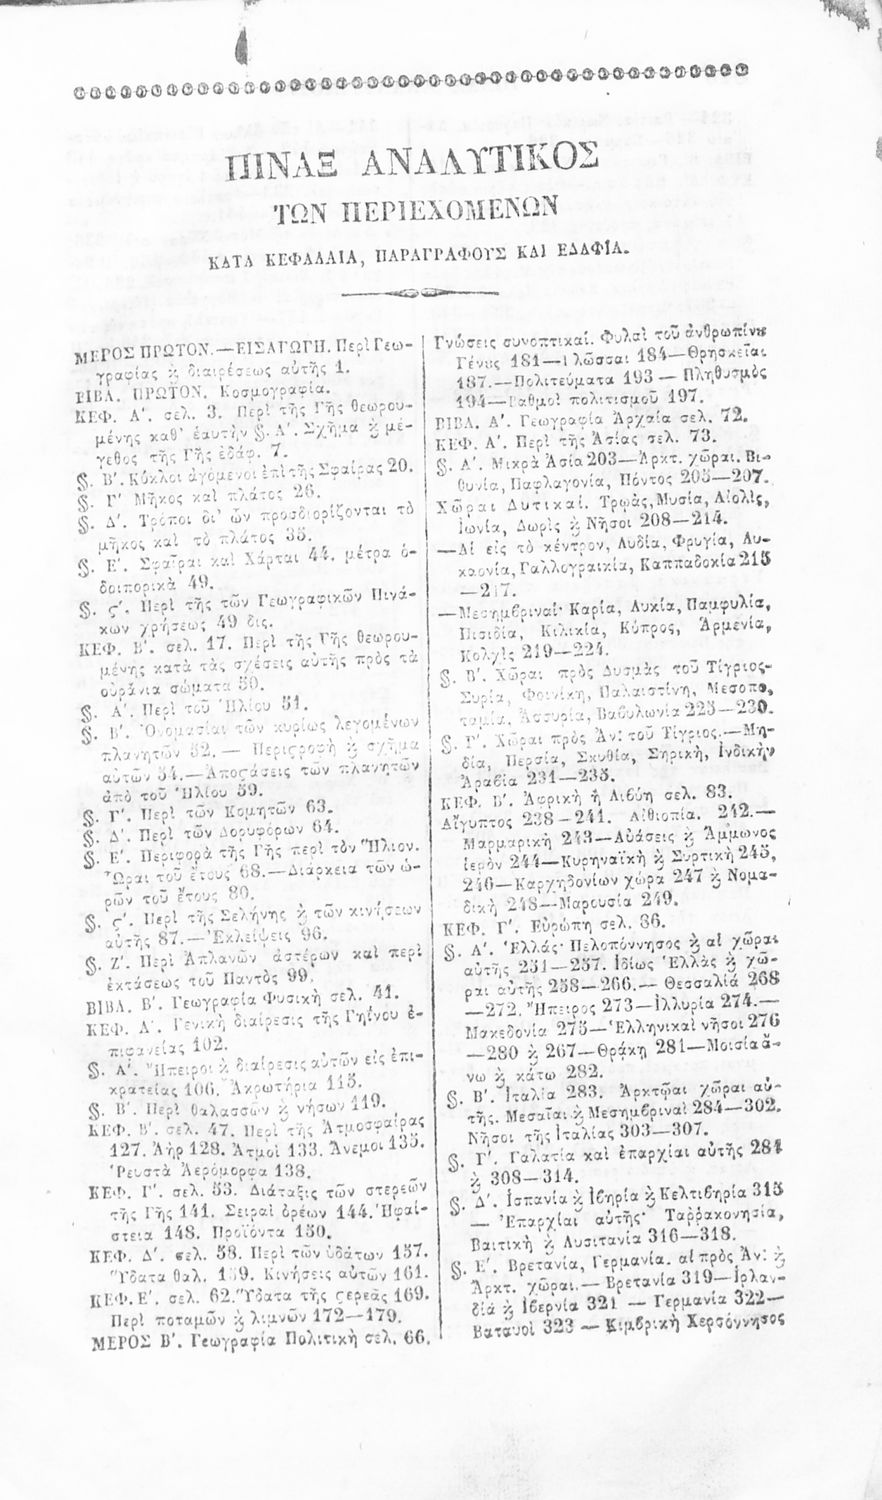 ΠΙΝΑΞ ΑΝΑΛΥΤΙΚΟΣ
ΤΩΝ ΠΕΡΙΕΧΟΜΕΝΩΝ
ΚΑΤΑ ΚΕΦΑΛΑΙΑ, ΠΑΡΑΓΡΑΦΟΥΣ ΚΑΙ ΕΔΑΦΙΑ.
ΜΕΡΟΣ ΠΡΩΤΟΝ.—ΕΙΣΑΓΩΓΗ. Περὶ Γεω-
γραφίας ϗ διαιρέσεως αὐτῆς 1.
ΒΙΒΛ. ΠΡΩΤΟΝ. Κοσμογραφία.
ΚΕΦ. Α'. σελ. 3. Περὶ τῆς Γῆς θεωρου-
μένης καθ' ἑαυτὴν §. Α'. Σχῆμα ϗ μέ-
γεθος τῆς Γῆς ἐδάφ. 7.
§. Β'. Κύκλοι ἀγόμενοι ἐπὶ τῆς Σφαίρας 20.
§. Γ' Μῆκος καὶ πλάτος 26.
§. Δ'. Τρόποι δι' ὧν προσδιορίζονται τὸ
μῆκος καὶ τὸ πλάτος 35.
§. Ε'. Σφαῖραι καὶ Χάρται 44. μέτρα ὁ-
δοιπορικὰ 49.
§. ϛ'. Περὶ τῆς τῶν Γεωγραφικῶν Πινά-
κων χρήσεως 49 δις.
ΚΕΦ. Β'. σελ. 17. Περὶ τῆς Γῆς θεωρου-
μένης κατὰ τὰς σχέσεις αὐτῆς πρὸς τὰ
οὐράνια σώματα 50.
§. Α'. Περὶ τοῦ Ἡλίου 51.
§. Β'. Ὀνομασίαι τῶν κυρίως λεγομένων
πλανητῶν 52. — Περιϛροφὴ ϗ σχῆμα
αὐτῶν 54.—Αποϛάσεις τῶν πλανητῶν
ἀπὸ τοῦ Ἡλίου 59.
§. Γ'. Περὶ τῶν Κομητῶν 63.
§. Δ'. Περὶ τῶν Δορυφόρων 64.
§. Ε'. Περιφορὰ τῆς Γῆς περὶ τὸν Ἥλιον.
Ὧραι τοῦ ἔτους 68.—Διάρκεια τῶν ὡ-
ρῶν τοῦ ἔτους 80.
§. ϛ'. Περὶ τῆς Σελήνης ϗ τῶν κινήσεων
αὐτῆς 87.—Ἐκλείψεις 96.
§. Ζ'. Περὶ Ἀπλανῶν ἀστέρων καὶ περὶ
ἐκτάσεως τοῦ Παντὸς 99.
ΒΙΒΛ. Β'. Γεωγραφία Φυσικὴ σελ. 41.
ΚΕΦ. Α'. Γενικὴ διαίρεσις τῆς Γηΐνου ἐ-
πιφανείας 102.
§. Α'. Ἤπειροι ϗ διαίρεσις αὐτῶν εἰς ἐπι-
κρατείας 106. Ἀκρωτήρια 115.
§. Β'. Περὶ θαλασσῶν ϗ νήσων 119.
ΚΕΦ. Β'. σελ. 47. Περὶ τῆς Ἀτμοσφαίρας
127. Ἀὴρ 128. Ἀτμοὶ 133. Ἄνεμοι 135.
Ῥευστὰ Ἀερόμορφα 138.
ΚΕΦ. Γ'. σελ. 53. Διάταξις τῶν στερεῶν
τῆς Γῆς 141. Σειραὶ ὀρέων 144. Ἡφαί-
στεια 148. Προϊόντα 150.
ΚΕΦ. Δ'. σελ. 58. Περὶ τῶν ὑδάτων 157.
Ὕδατα θαλ. 159. Κινήσεις αὐτῶν 161.
ΚΕΦ. Ε'. σελ. 62. Ὕδατα τῆς ϛερεᾶς 169.
Περὶ ποταμῶν ϗ λιμνῶν 172—179.
ΜΕΡΟΣ Β'. Γεωγραφία Πολιτικὴ σελ. 66.
Γνώσεις συνοπτικαί. Φυλαὶ τοῦ ἀνθρωπίνȣ
Γένȣς 181—Γλῶσσαι 184—Θρησκεῖαι
187.—Πολιτεύματα 193 — Πληθυσμὸς
194—Βαθμοὶ πολιτισμοῦ 197.
ΒΙΒΛ. Α'. Γεωγραφία Ἀρχαία σελ. 72.
ΚΕΦ. Α'. Περὶ τῆς Ἀσίας σελ. 73.
§. Α'. Μικρὰ Ἀσία 203—Ἀρκτ. χῶραι. Βι-
θυνία, Παφλαγονία, Πόντος 205—207.
Χῶραι Δυτικαί. Τρωὰς, Μυσία, Αἰολὶς,
Ἰωνία, Δωρὶς ϗ Νῆσοι 208—214.
—Αἱ εἰς τὸ κέντρον, Λυδία, Φρυγία, Λυ-
καονία, Γαλλογραικία, Καππαδοκία 215
—217.
—Μεσημβριναί· Καρία, Λυκία, Παμφυλία,
Πισιδία, Κιλικία, Κύπρος, Ἀρμενία,
Κολχὶς 219—224.
§. Β'. Χῶραι πρὸς Δυσμὰς τοῦ Τίγριος-
Συρία, Φοινίκη, Παλαιστίνη, Μεσοπο-
ταμία, Ἀσσυρία, Βαβυλωνία 225—230.
§. Γ'. Χῶραι πρὸς Ἀν: τοῦ Τίγριος.—Μη-
δία, Περσία, Σκυθία, Σηρικὴ, Ἰνδικὴ,
Ἀραβία 231—235.
ΚΕΦ. Β'. Ἀφρικὴ ἢ Λιβύη σελ. 83.
Αἴγυπτος 238—241. Αἰθιοπία. 242.—
Μαρμαρικὴ 243—Αὐάσεις ϗ Ἄμμωνος
ἱερὸν 244—Κυρηναϊκὴ ϗ Συρτικὴ 245,
246—Καρχηδονίων χώρα 247 ϗ Νομα-
δικὴ 248—Μαρουσία 249.
ΚΕΦ. Γ'. Εὐρώπη σελ. 86.
§. Α'. Ἑλλάς· Πελοπόννησος ϗ αἱ χῶραι
αὐτῆς 251—257. Ἰδίως Ἑλλὰς ϗ χῶ-
ραι αὐτῆς 258—266.— Θεσσαλία 268
—272. Ἤπειρος 273—Ἰλλυρία 274.—
Μακεδονία 275—Ἑλληνικαὶ νῆσοι 276
—280 ϗ 267—Θράκη 281—Μοισία ἄ-
νω ϗ κάτω 282.
§. Β'. Ἰταλία 283. Ἀρκτῷαι χῶραι αὐ-
τῆς. Μεσαῖαι ϗ Μεσημβριναὶ 284—302.
Νῆσοι τῆς Ἰταλίας 303—307.
§. Γ'. Γαλατία καὶ ἐπαρχίαι αὐτῆς 284
ϗ 308—314.
§. Δ'. Ἱσπανία ϗ Ἰβηρία ϗ Κελτιβηρία 315
— Ἐπαρχίαι αὐτῆς· Ταῤῥακονησία,
Βαιτικὴ ϗ Λυσιτανία 316—318.
§. Ε'. Βρετανία, Γερμανία. αἱ πρὸς Ἀν: ϗ
Ἀρκτ. χῶραι.— Βρετανία 319—Ἰρλαν-
δία ϗ Ἰβερνία 321 — Γερμανία 322—
Βαταυοὶ 323 — Κιμβρικὴ Χερσόννησος